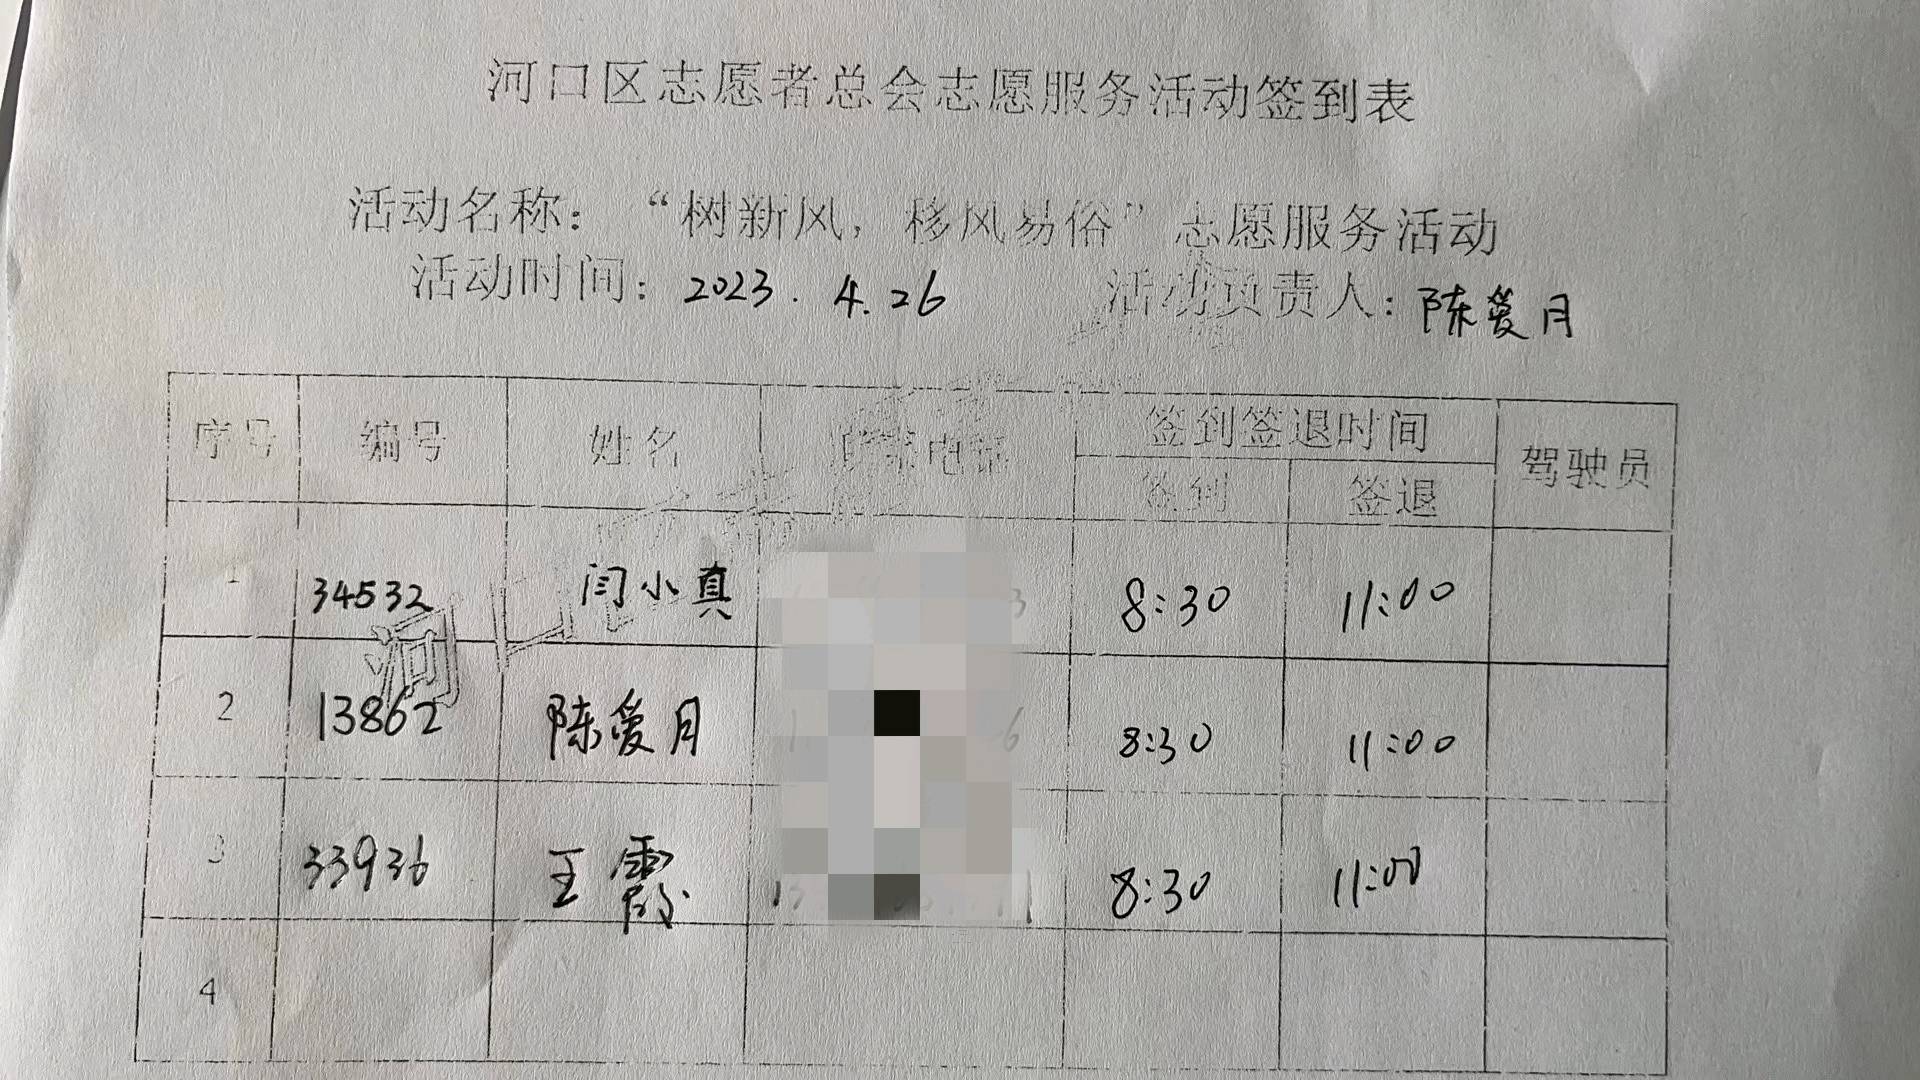 河口区志愿者总会志愿服务活动签到表
活动名称：“树新风，移风易俗”志愿服务活动
活动时间：2023.4.26 活动负责人：陈爱月
序号 编号 姓名 联系电话 签到签退时间 驾驶员
签到 签退
1 34532 闫小真 8:30 11:00
2 13862 陈爱月 8:30 11:00
3 33936 王霞 8:30 11:00
4